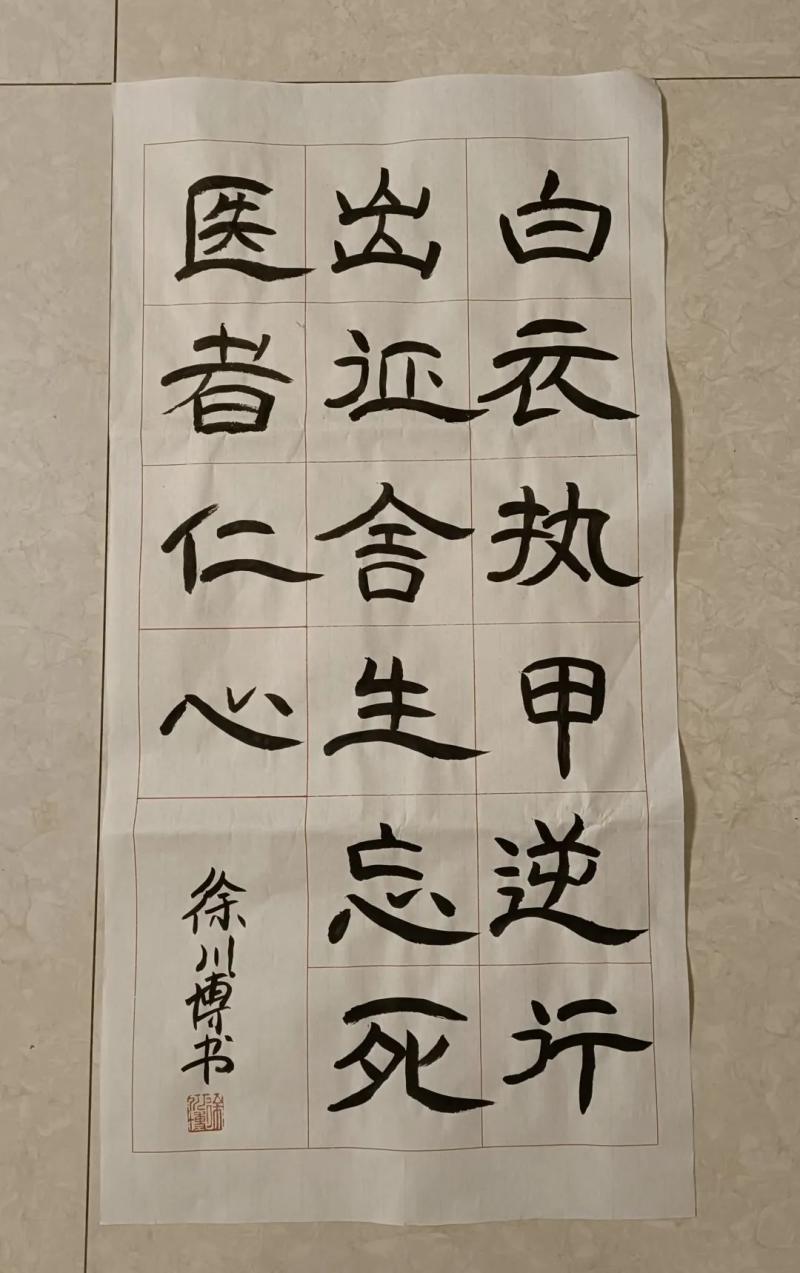 白衣执甲逆行
出征舍生忘死
医者仁心
徐川博书
徐川博